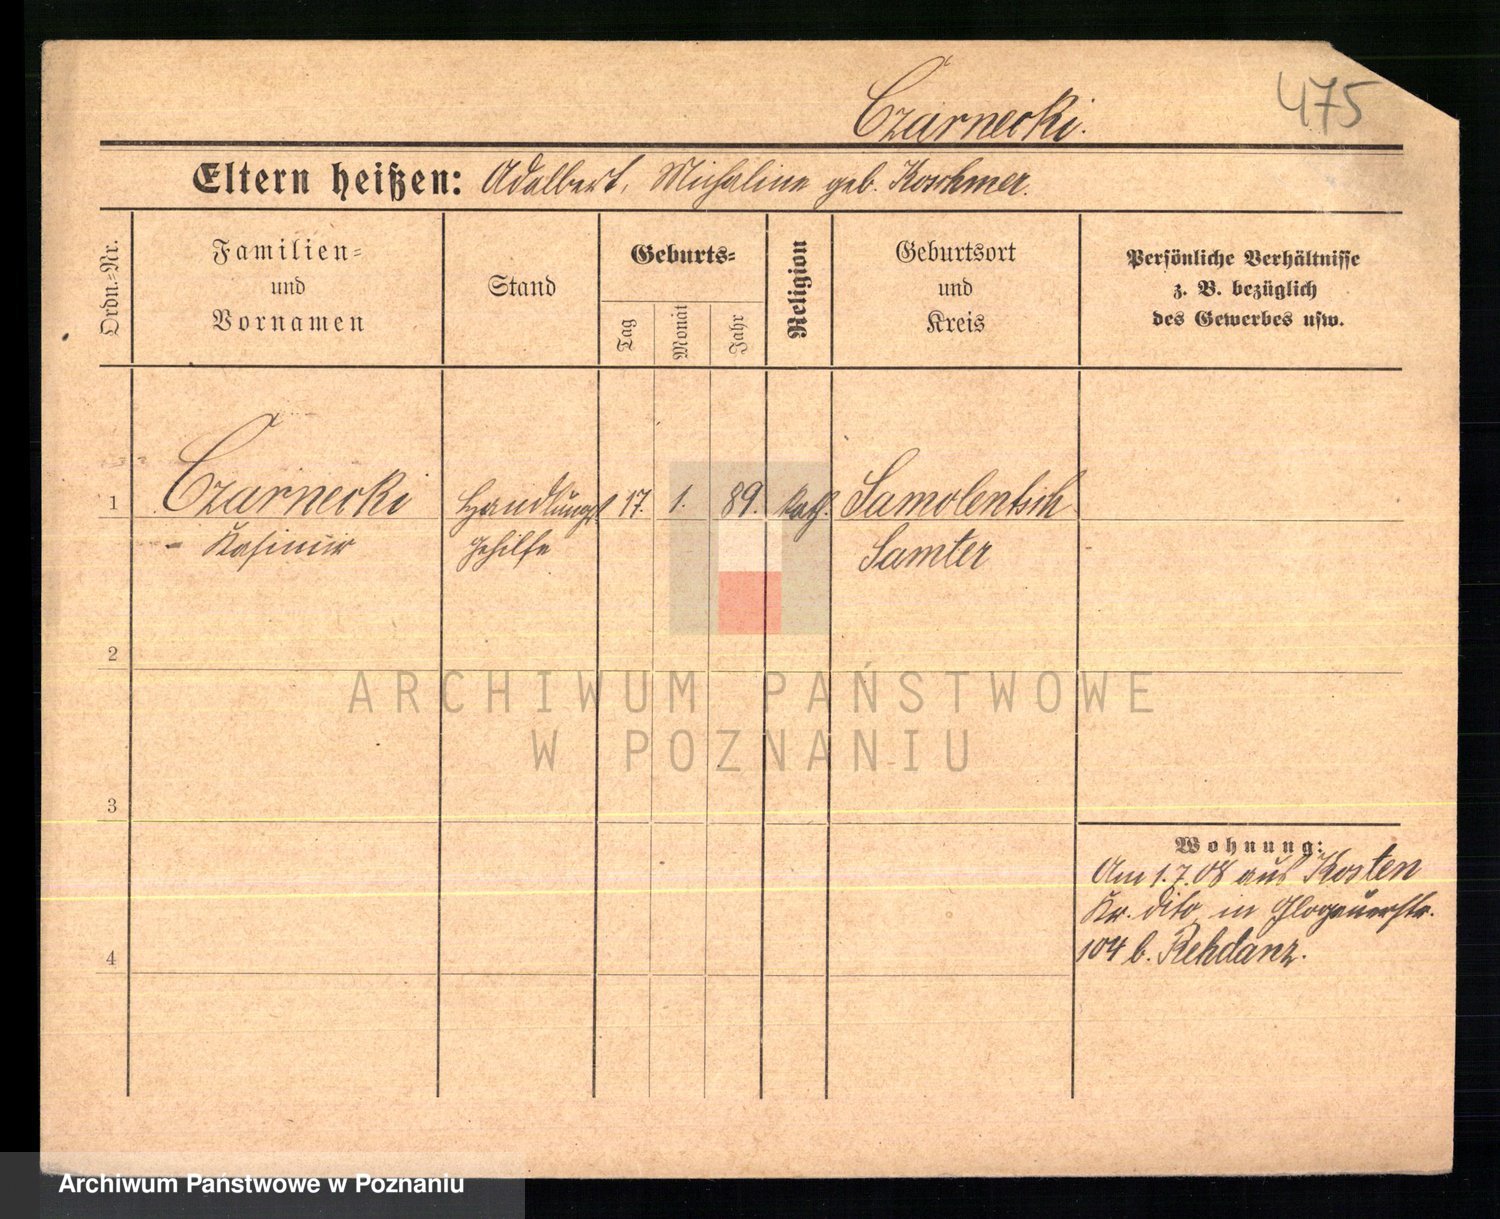 475
Czarnecki.
Eltern heißen: Adalbert, Michaline geb. Koschmer.
Ordn.-Nr.
Familien-
und
Vornamen
Stand
Geburts-
Tag
Monat
Jahr
Religion
Geburtsort
und
Kreis
Persönliche Verhältnisse
z. B. bezüglich
des Gewerbes usw.
1 Czarnecki Handlungs 17. 1. 89. kath. Samolentsch
- Kasimir gehilfe Samter
2
ARCHIWUM PAŃSTWOWE
W POZNANIU
3
Wohnung:
Am 1.7.08 aus Kosten
Kr. dito in Glogauerstr.
4
104 b. Rehdanz.
Archiwum Państwowe w Poznaniu